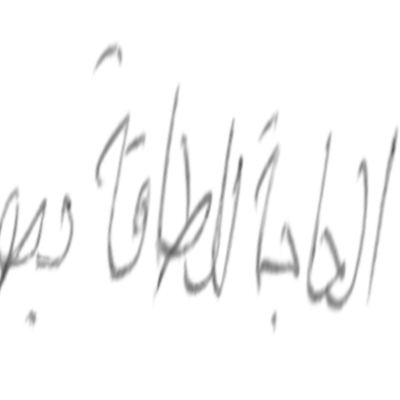 الحاجة للطاقة